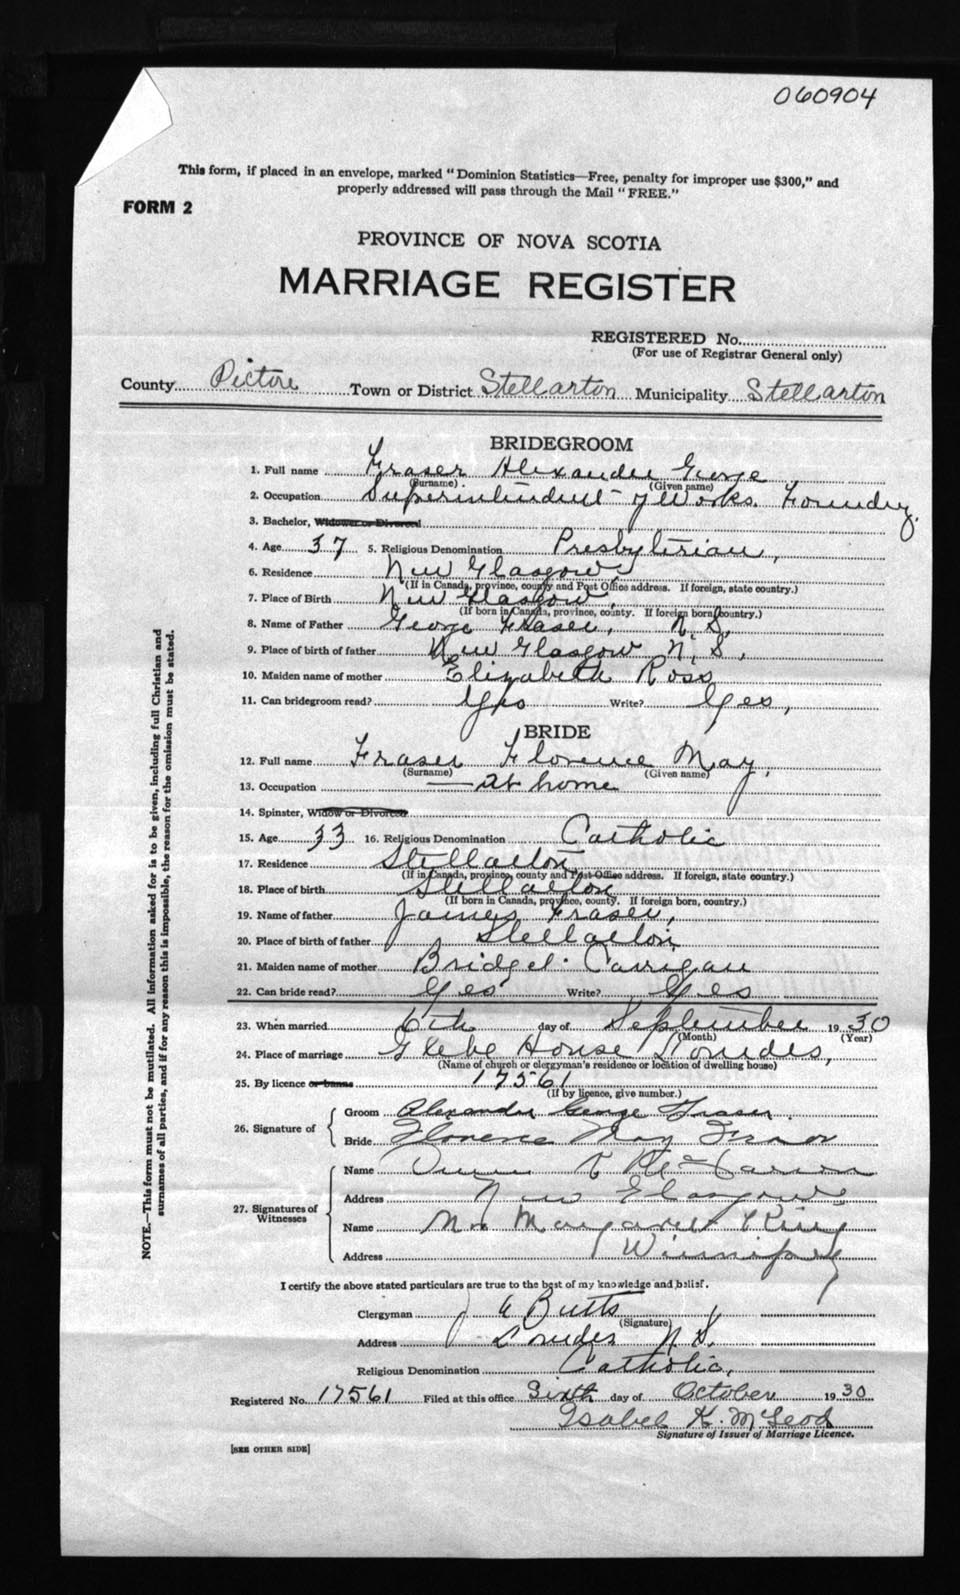 060904
This form, if placed in an envelope, marked "Dominion Statistics—Free, penalty for improper use $300," and
properly addressed will pass through the Mail "FREE."
FORM 2
PROVINCE OF NOVA SCOTIA
MARRIAGE REGISTER
REGISTERED No.
(For use of Registrar General only)
County Pictou Town or District Stellarton Municipality Stellarton
BRIDEGROOM
1. Full name Fraser Alexander George
(Surname) (Given name)
2. Occupation Superintendent of Works. Foundry.
3. Bachelor, Widower or Divorced
4. Age 37 5. Religious Denomination Presbyterian,
6. Residence New Glasgow
(If in Canada, province, county and Post Office address. If foreign, state country.)
7. Place of Birth New Glasgow,
(If born in Canada, province, county. If foreign born, country.)
8. Name of Father George Fraser, N.S.
9. Place of birth of father New Glasgow N.S,
10. Maiden name of mother Elizabeth Ross
11. Can bridegroom read? Yes Write? Yes,
BRIDE
12. Full name Fraser Florence May,
(Surname) (Given name)
13. Occupation — at home
14. Spinster, Widow or Divorced
15. Age 33 16. Religious Denomination Catholic
17. Residence Stellarton
(If in Canada, province, county and Post Office address. If foreign, state country.)
18. Place of birth Stellarton
(If born in Canada, province, county. If foreign born, country.)
19. Name of father James Fraser,
20. Place of birth of father Stellarton
21. Maiden name of mother Bridget Carrigan
22. Can bride read? Yes Write? Yes
23. When married 6th day of September 19 30
(Month) (Year)
24. Place of marriage Glebe House Lourdes,
(Name of church or clergyman's residence or location of dwelling house)
25. By licence or banns 17561
(If by licence, give number.)
26. Signature of
Groom Alexander George Fraser.
Bride Florence May Fraser
27. Signatures of Witnesses
Name
Address New Glasgow
Name Mrs Margaret King
Address Winnipeg
I certify the above stated particulars are true to the best of my knowledge and belief.
Clergyman J A Butts
(Signature)
Address Lourdes N.S.
Religious Denomination Catholic,
Registered No. 17561 Filed at this office Sixth day of October 19 30
Isabel K. McLeod
Signature of Issuer of Marriage Licence.
[SEE OTHER SIDE]
NOTE.—This form must not be mutilated. All information asked for is to be given, including full Christian and
surnames of all parties, and if for any reason this is impossible, the reason for the omission must be stated.